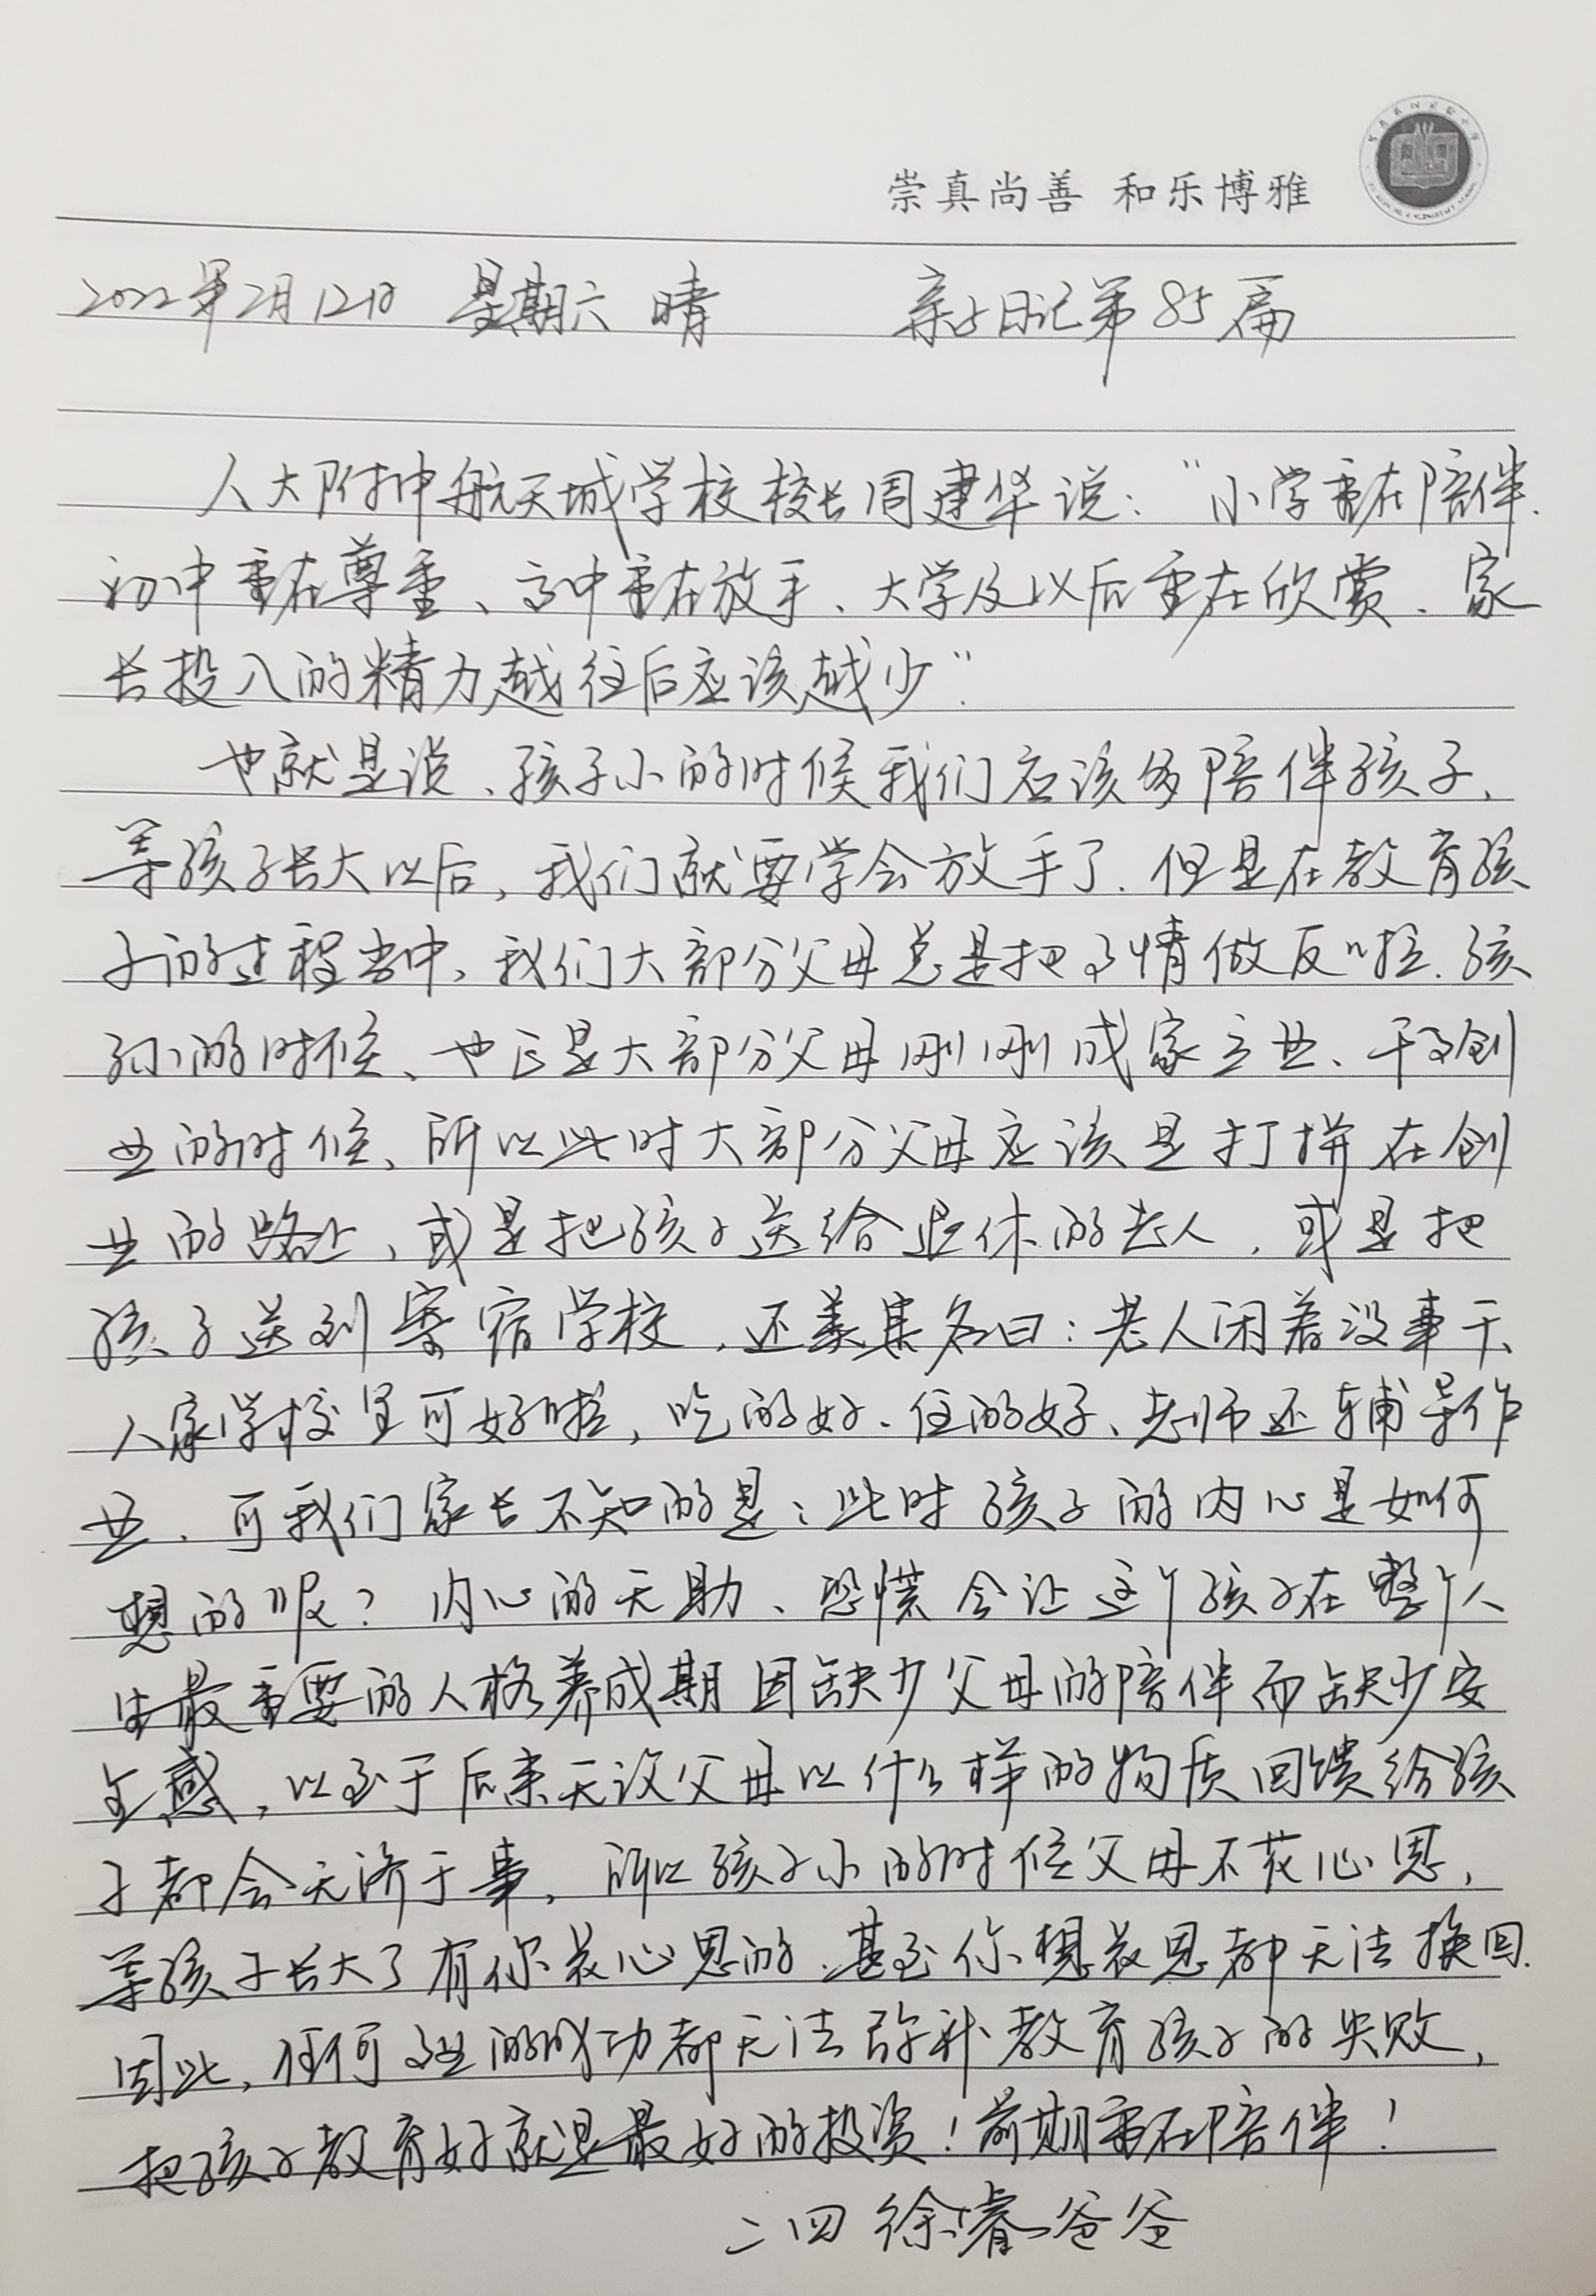 崇真尚善 和乐博雅
2022年2月12日 星期六 晴 亲子日记第85篇
人大附中航天城学校校长周建华说："小学重在陪伴、
初中重在尊重、高中重在放手、大学及以后重在欣赏、家
长投入的精力越往后应该越少"
也就是说、孩子小的时候我们应该多陪伴孩子、
等孩子长大以后，我们就要学会放手了.但是在教育孩
子的过程当中、我们大部分父母总是把事情做反啦.孩
子小的时候、也正是大部分父母刚刚成家立业、干事创
业的时候、所以此时大部分父母应该是打拼在创
业的路上、或是把孩子送给退休的老人，或是把
孩子送到寄宿学校，还美其名曰：老人闲着没事干、
人家学校里可好啦，吃的好、住的好、老师还辅导作
业、可我们家长不知的是：此时孩子的内心是如何
想的呢？内心的无助、恐慌会让这个孩子在整个人
生最重要的人格养成期因缺少父母的陪伴而缺少安
全感，以至于后来无论父母以什么样的物质回馈给孩
子都会无济于事，所以孩子小的时候父母不花心思，
等孩子长大了有你花心思的、甚至你想花心思都无法换回.
因此，任何事业的成功都无法弥补教育孩子的失败，
把孩子教育好就是最好的投资！前期重在陪伴！
二四 徐睿爸爸